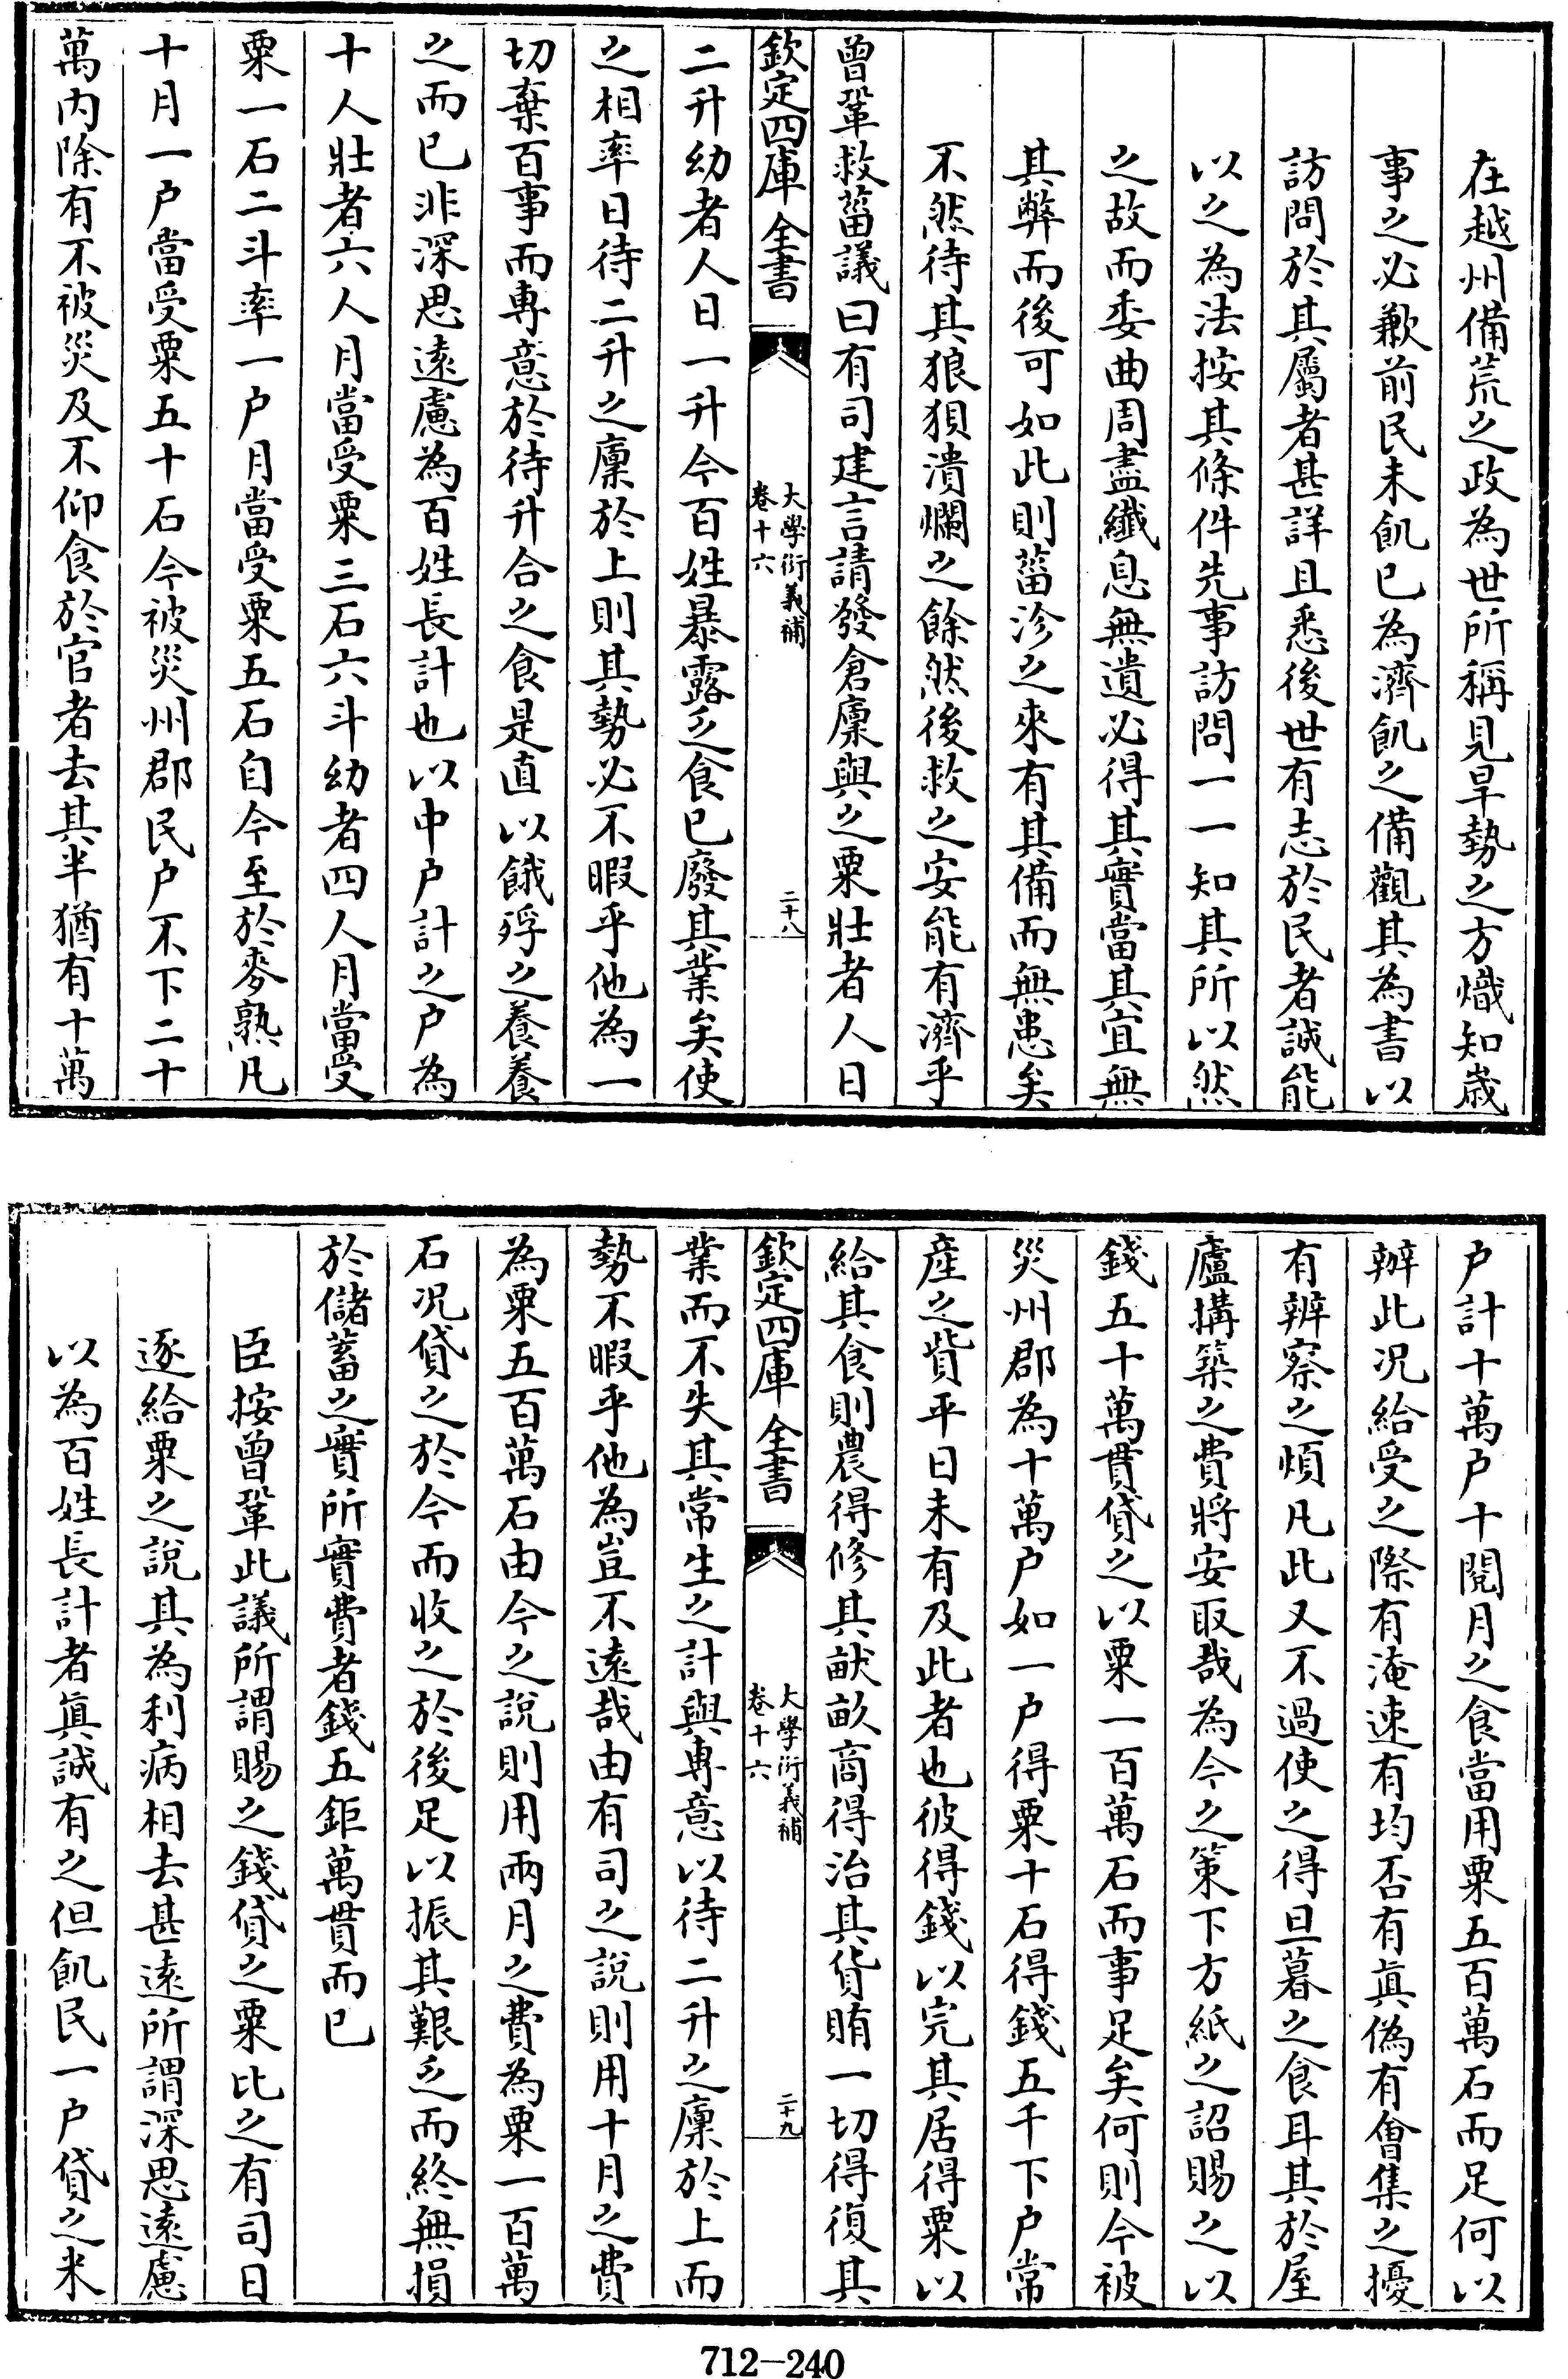 在越州備荒之政為世所稱見旱勢之方熾知歲
事之必歉前民未飢已為濟飢之備觀其為書以
訪問於其屬者甚詳且悉後世有志於民者誠能
以之為法按其條件先事訪問一一知其所以然
之故而委曲周盡纖息無遺必得其實當其宜無
其弊而後可如此則菑沴之來有其備而無患矣
不然待其狼狽潰爛之餘然後救之安能有濟乎
曾鞏救菑議曰有司建言請發倉廩與之粟壯者人日
欽定四庫全書
大學衍義補
卷十六
二十八
二升幼者人日一升今百姓暴露乏食已廢其業矣使
之相率日待二升之廩於上則其勢必不暇乎他為一
切棄百事而專意於待升合之食是直以餓殍之養養
之而已非深思遠慮為百姓長計也以中户計之户為
十人壯者六人月當受粟三石六斗幼者四人月當受
粟一石二斗率一户月當受粟五石自今至於麥熟凡
十月一户當受粟五十石今被災州郡民户不下二十
萬内除有不被災及不仰食於官者去其半猶有十萬
户計十萬户十閱月之食當用粟五百萬石而足何以
辦此况給受之際有淹速有均否有眞偽有㑹集之擾
有辨察之煩凡此又不過使之得旦暮之食耳其於屋
廬搆築之費將安取哉為今之策下方紙之詔賜之以
錢五十萬貫貸之以粟一百萬石而事足矣何則今被
災州郡為十萬户如一户得粟十石得錢五千下户常
産之貲平日未有及此者也彼得錢以完其居得粟以
給其食則農得修其畎畝商得治其貨賄一切得復其
欽定四庫全書
大學衍義補
卷十六
二十九
業而不失其常生之計與專意以待二升之廩於上而
勢不暇乎他為豈不遠哉由有司之說則用十月之費
為粟五百萬石由今之說則用兩月之費為粟一百萬
石况貸之於今而收之於後足以振其艱乏而終無損
於儲蓄之實所實費者錢五鉅萬貫而已
臣按曾鞏此議所謂賜之錢貸之粟比之有司日
逐給粟之說其為利病相去甚遠所謂深思遠慮
以為百姓長計者眞誠有之但飢民一户貸之米
712-240